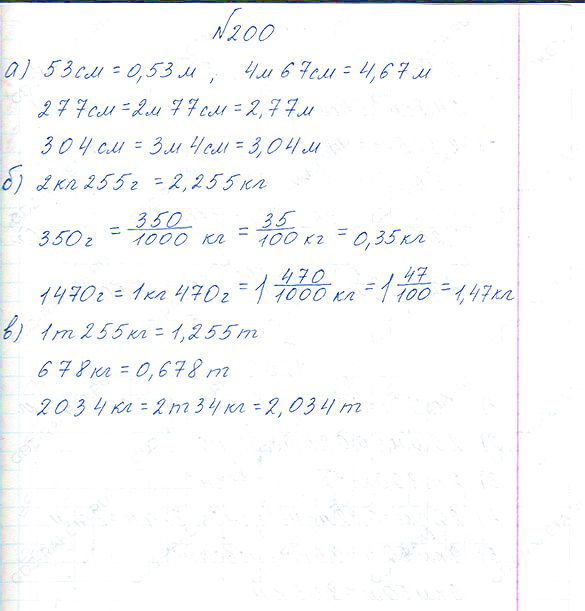 №200
а) 53см = 0,53м , 4м 67см = 4,67м
277см = 2м 77см = 2,77м
304см = 3м 4см = 3,04м
б) 2кг 255г = 2,255кг
350г = 350/1000 кг = 35/100 кг = 0,35кг
1470г = 1кг 470г = 1 470/1000 кг = 1 47/100 = 1,47кг
в) 1т 255кг = 1,255т
678кг = 0,678т
2034кг = 2т 34кг = 2,034т